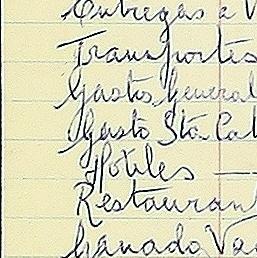 Entregas a V
Transportes
Gastos General
Gasto Sta Cat
Hoteles —
Restauran
Ganado Va